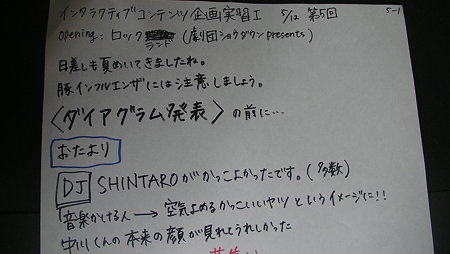 インタラクティブコンテンツ企画実習Ⅰ 5/12 第5回 5-1
Opening: ロックランド (劇団ショウダウン presents)
日差しも夏めいてきましたね。
豚インフルエンザには注意しましょう。
〈ダイアグラム発表〉の前に…
おたより
DJ SHINTAROがかっこよかったです。(多数)
音楽かける人 → 空気よめるかっこいいヤツ というイメージに!!
中川くんの本来の顔が見れてうれしかった